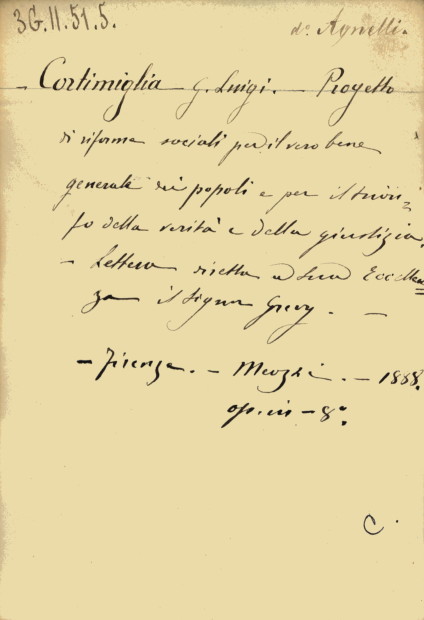 3G.II.51.5.
do Agnelli.
Cortimiglia G. Luigi. — Progetto
di riforme sociali per il vero bene
generale dei popoli e per il trion-
fo della verità e della giustizia.
— Lettera diretta a Sua Eccellen
za il Signor Grevy. —
— Firenze. — Meozzi. — 1888.
op. in – 8°.
C.